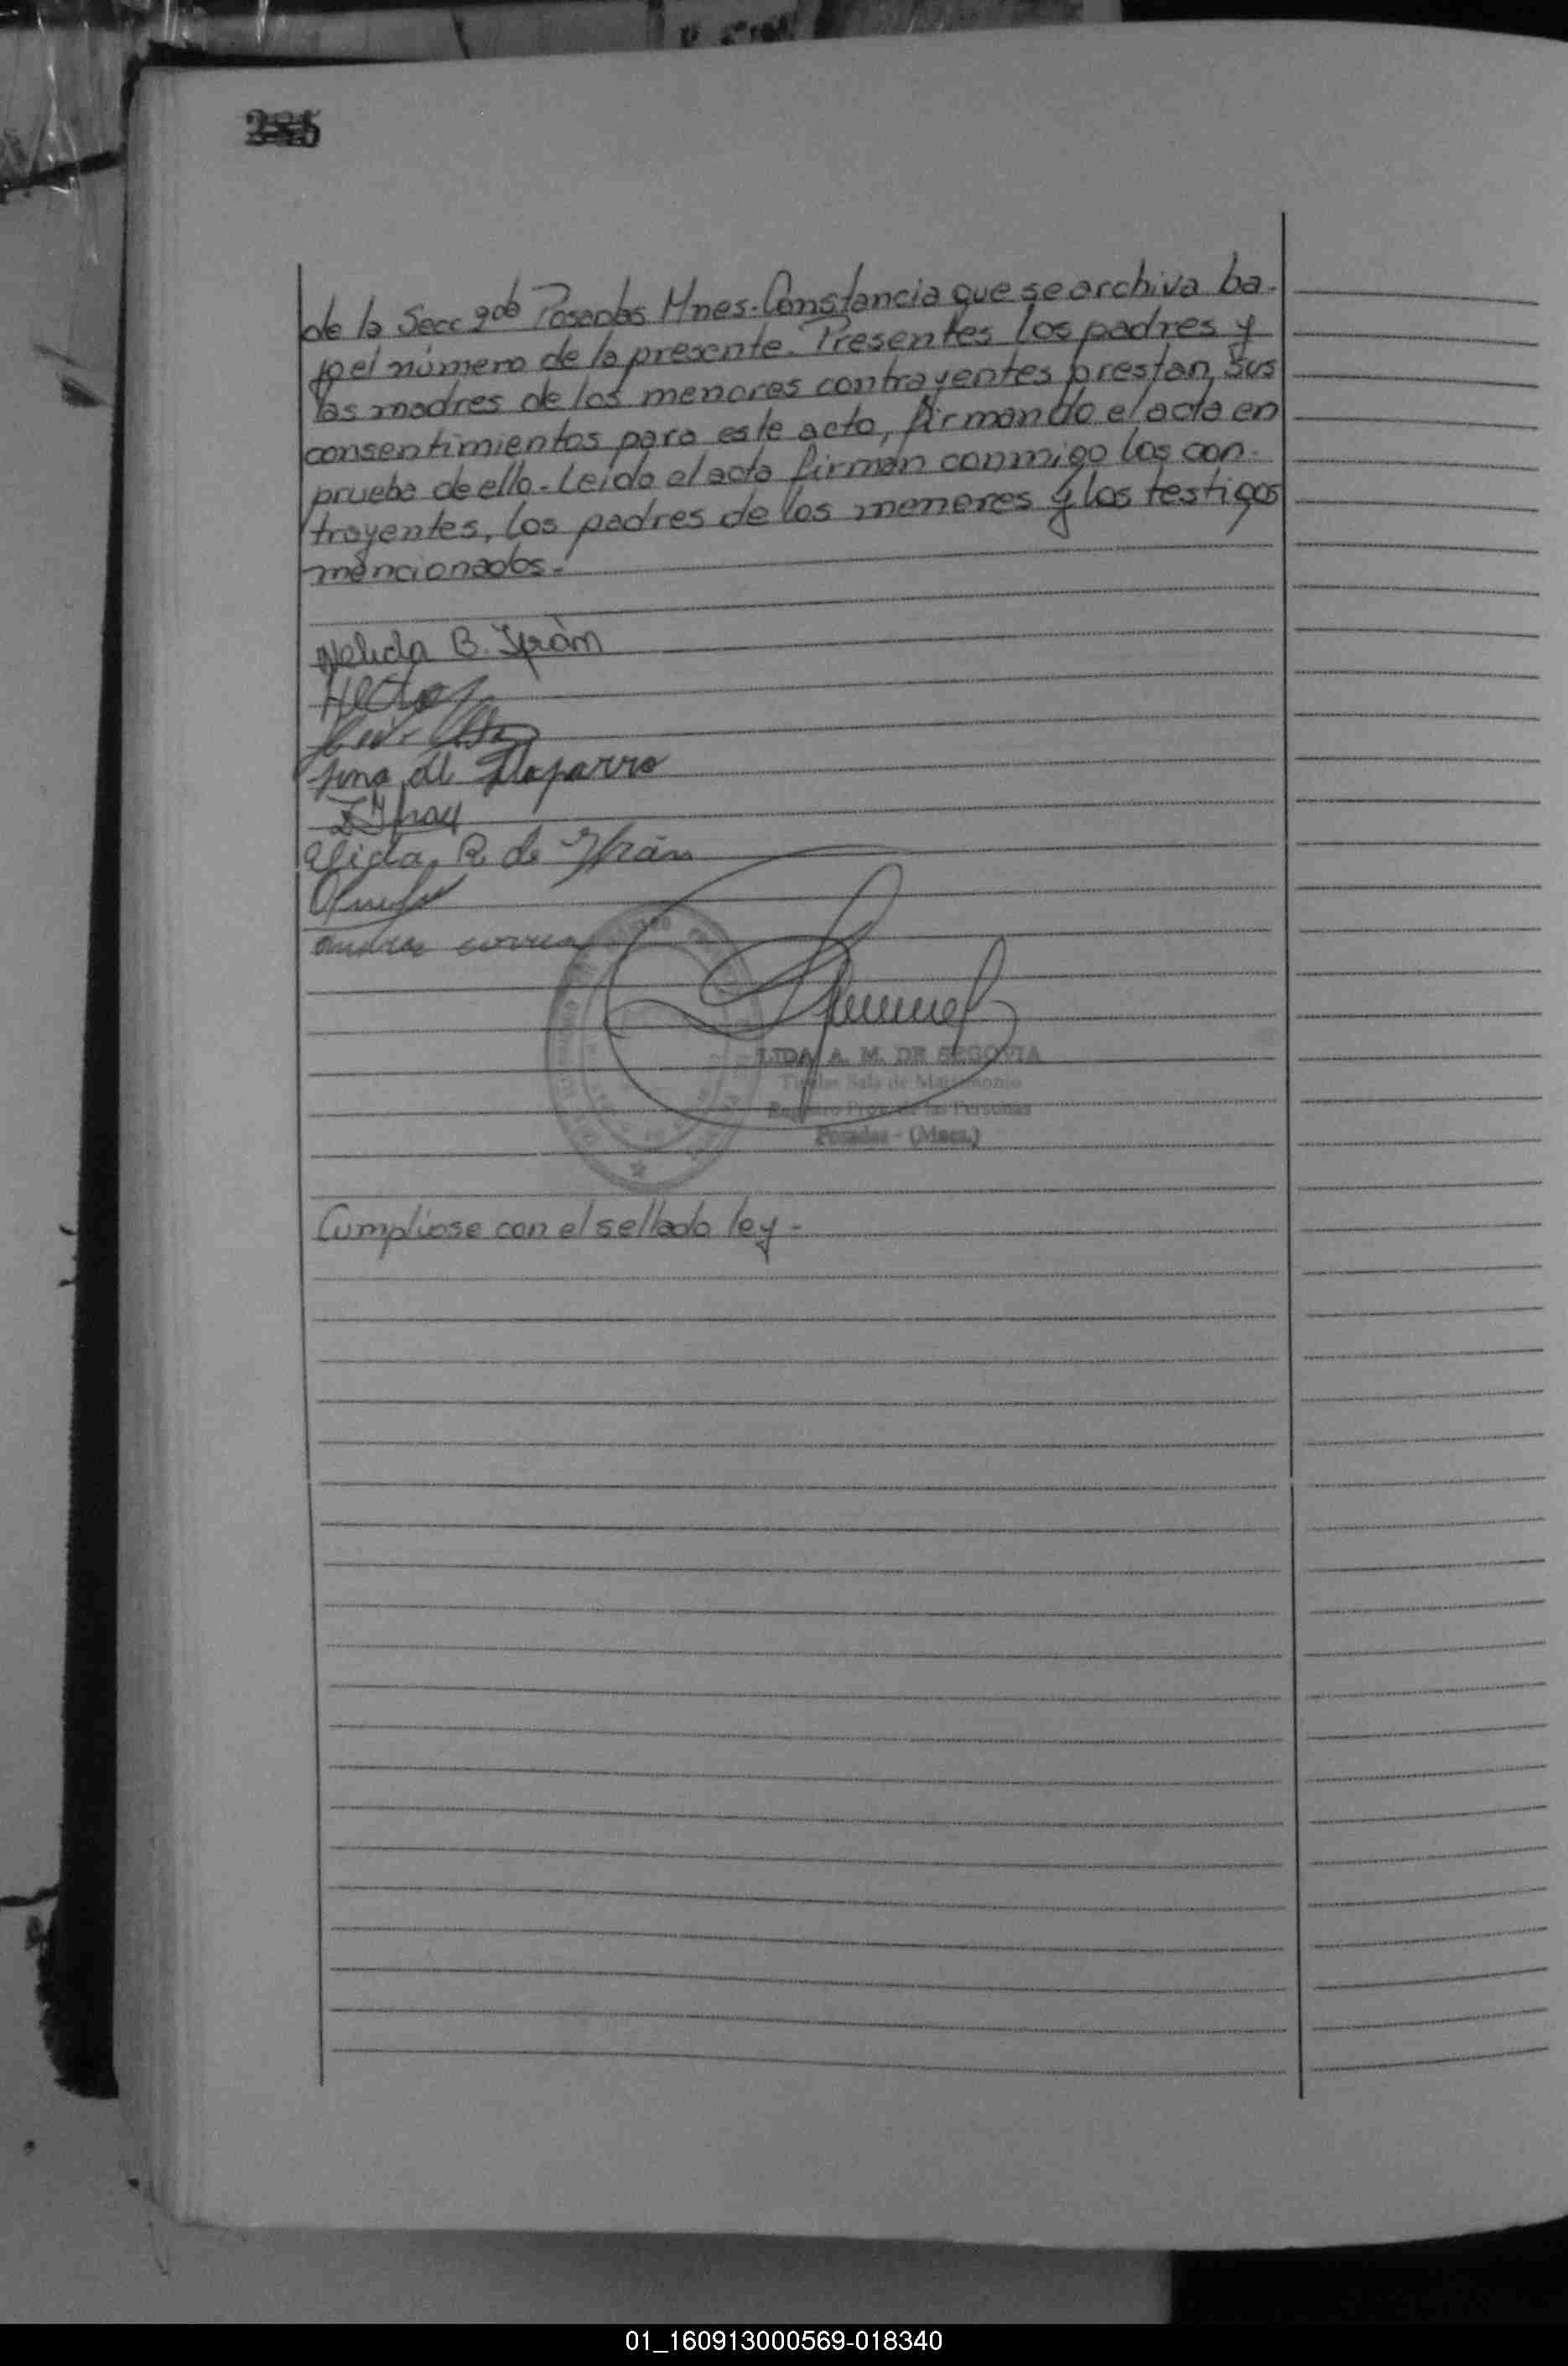 285
de la Secc 2da Posadas Mnes-Constancia que se archiva ba-
jo el número de la presente. Presentes los padres y
las madres de los menores contrayentes prestan sus
consentimientos para este acto, firmando el acta en
prueba de ello-Leída el acta firman conmigo los con-
trayentes, los padres de los menores y los testigos
mencionados-
Nelida B. Ifrán
Hector
de
Elida R de Ifrán
correa
LIDA A. M. DE SEGOVIA
Titular Sala de Matrimonio
Registro Prov. de las Personas
Posadas - (Mnes.)
Cumpliose con el sellado ley-
01_160913000569-018340